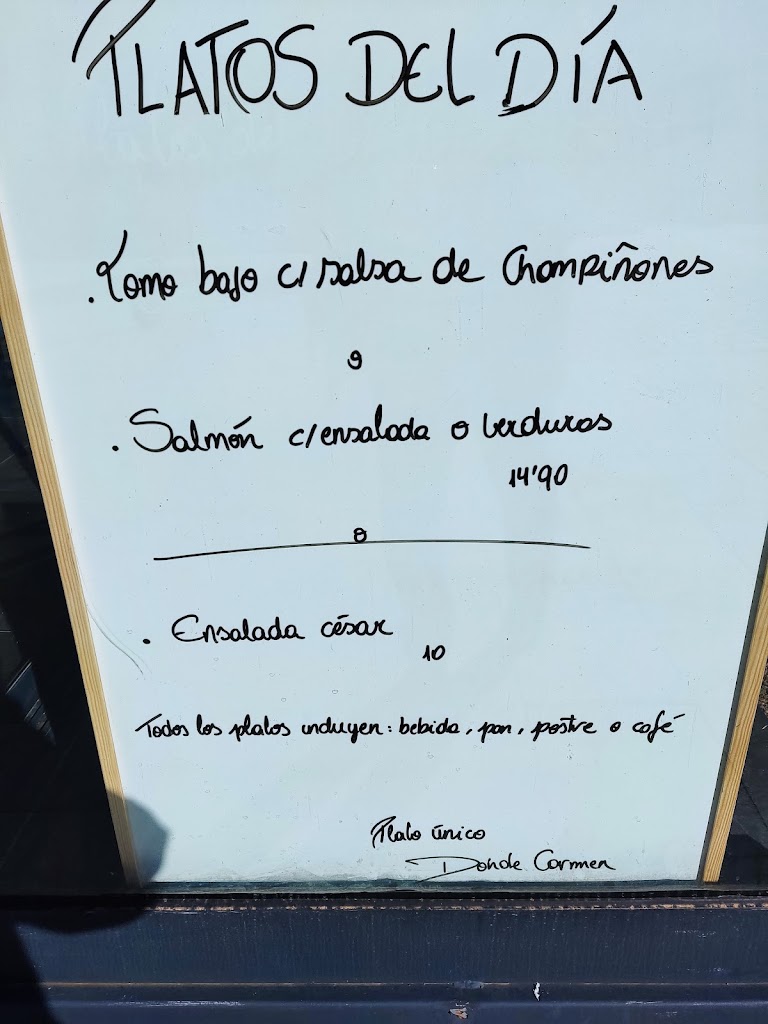 PLATOS DEL DÍA
. Lomo bajo c/ salsa de Champiñones
o
. Salmón c/ensalada o verduras
14'90
o
. Ensalada césar
10
Todos los platos incluyen: bebida, pan, postre o café
Plato único
Donde Carmen